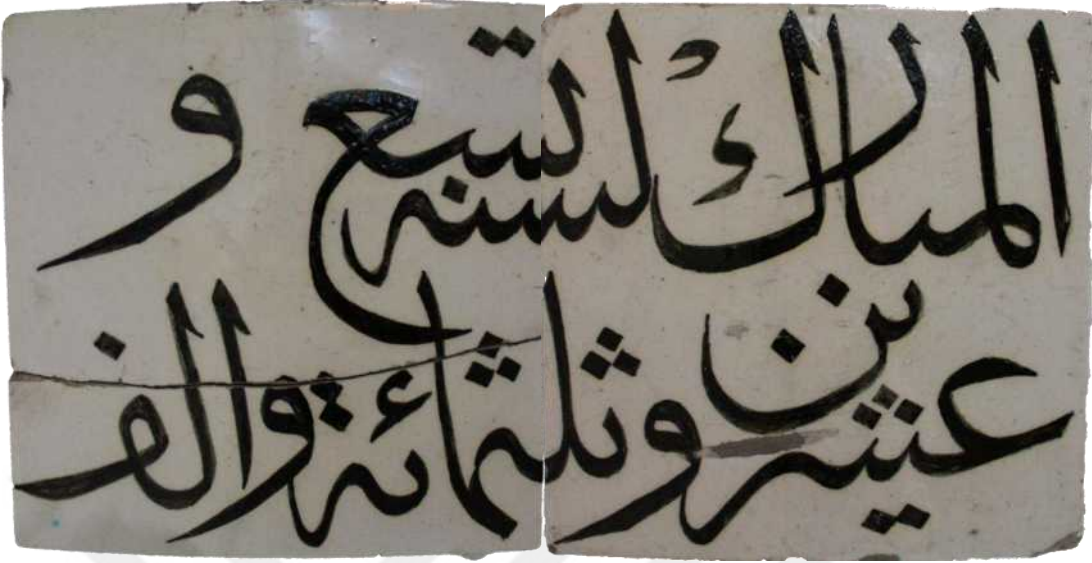 المبارك لسنة تسع و
عشرين وثلثمائة والف